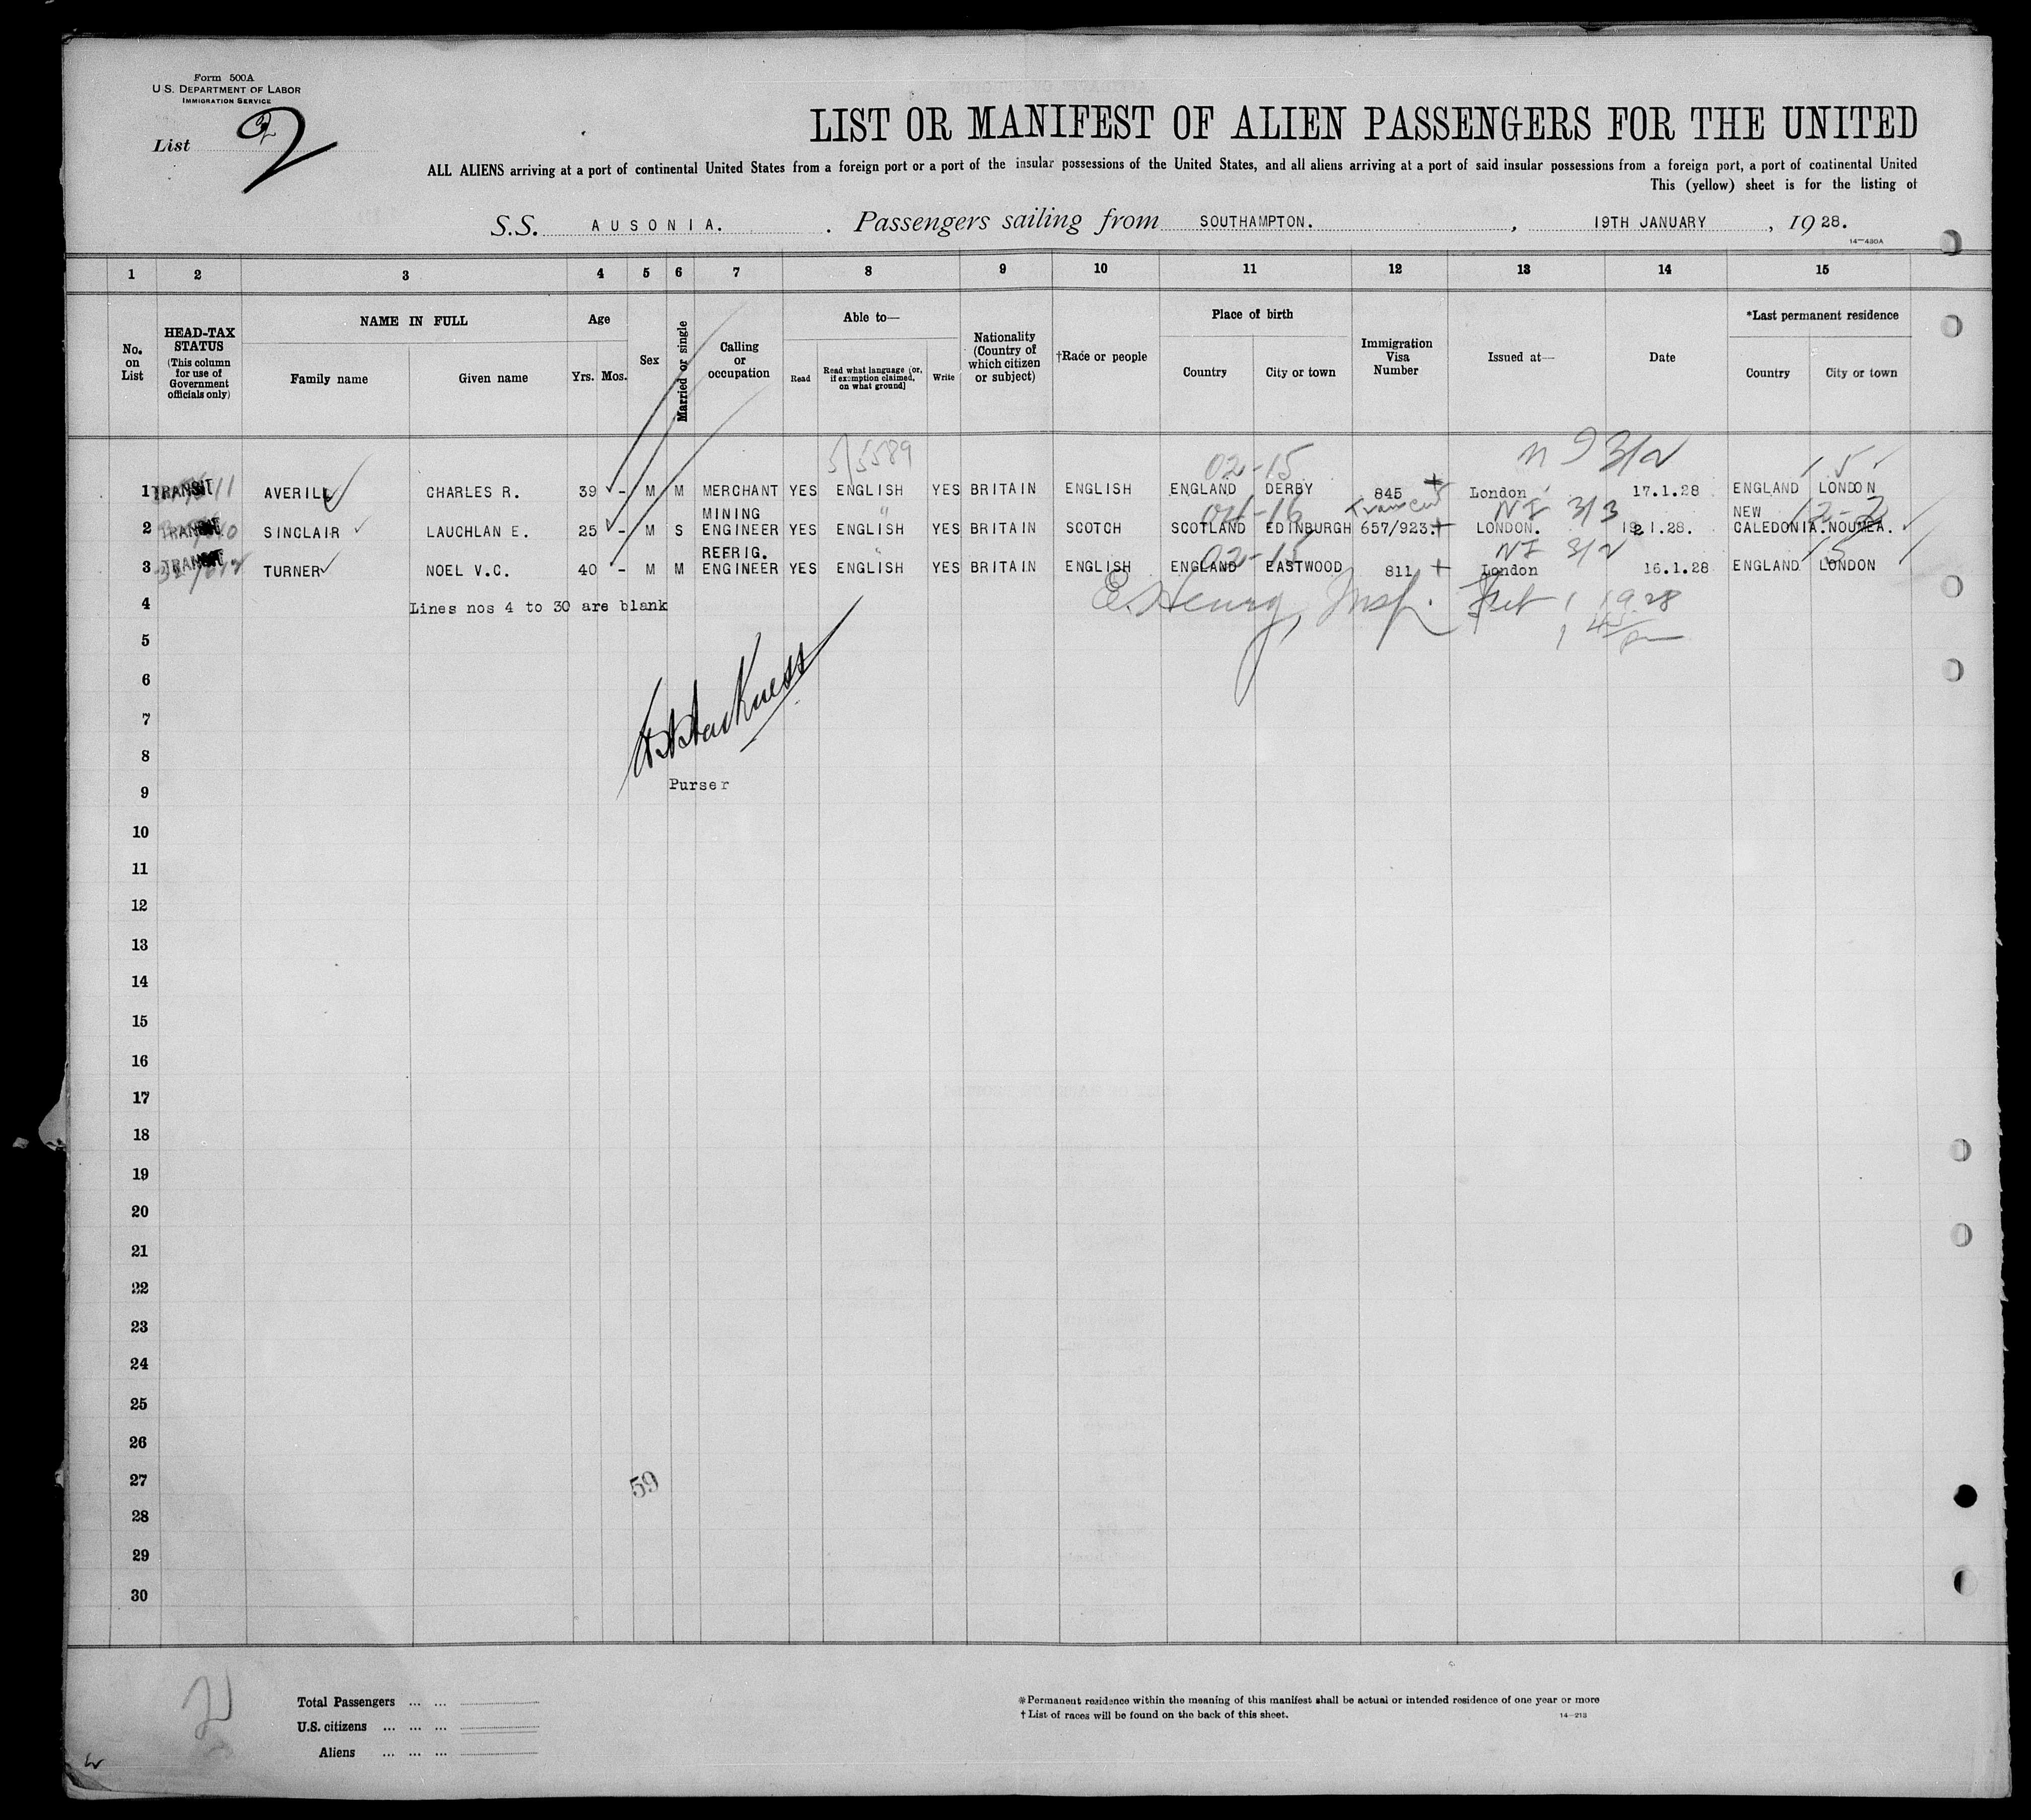 Form 500A
U.S. DEPARTMENT OF LABOR
IMMIGRATION SERVICE
List 2
LIST OR MANIFEST OF ALIEN PASSENGERS FOR THE UNITED
ALL ALIENS arriving at a port of continental United States from a foreign port or a port of the insular possessions of the United States, and all aliens arriving at a port of said insular possessions from a foreign port, a port of continental United
This (yellow) sheet is for the listing of
S.S. AUSONIA. Passengers sailing from SOUTHAMPTON. , 19TH JANUARY , 19 28.
14—430A
1 2 3 4 5 6 7 8 9 10 11 12 13 14 15
No. on List
HEAD-TAX STATUS (This column for use of Government officials only)
NAME IN FULL
Family name Given name
Age
Yrs. Mos.
Sex
Married or single
Calling or occupation
Able to—
Read Read what language [or, if exemption claimed, on what ground] Write
Nationality (Country of which citizen or subject)
†Race or people
Place of birth
Country City or town
Immigration Visa Number
Issued at—
Date
*Last permanent residence
Country City or town
5/5589 02-15 3/2 15
1 TRANSIT AVERILL CHARLES R. 39 - M M MERCHANT YES ENGLISH YES BRITAIN ENGLISH ENGLAND DERBY 845 London 17.1.28 ENGLAND LONDON
04-16 3/3 12-2
2 TRANSIT SINCLAIR LAUCHLAN E. 25 - M S MINING ENGINEER YES ENGLISH YES BRITAIN SCOTCH SCOTLAND EDINBURGH 657/923. LONDON. 1.28. NEW CALEDONIA. NOUMEA.
02-15 3/2 15
3 TRANSIT TURNER NOEL V.C. 40 - M M REFRIG. ENGINEER YES ENGLISH YES BRITAIN ENGLISH ENGLAND EASTWOOD 811 London 16.1.28 ENGLAND LONDON
4 Lines nos 4 to 30 are blank E. Henry, Insp.
5
6
7
8
Purser
9
10
11
12
13
14
15
16
17
18
19
20
21
22
23
24
25
26
27 59
28
29
30
Total Passengers ... ...
U.S. citizens ... ... ...
Aliens ... ... ...
*Permanent residence within the meaning of this manifest shall be actual or intended residence of one year or more
† List of races will be found on the back of this sheet.
14—213